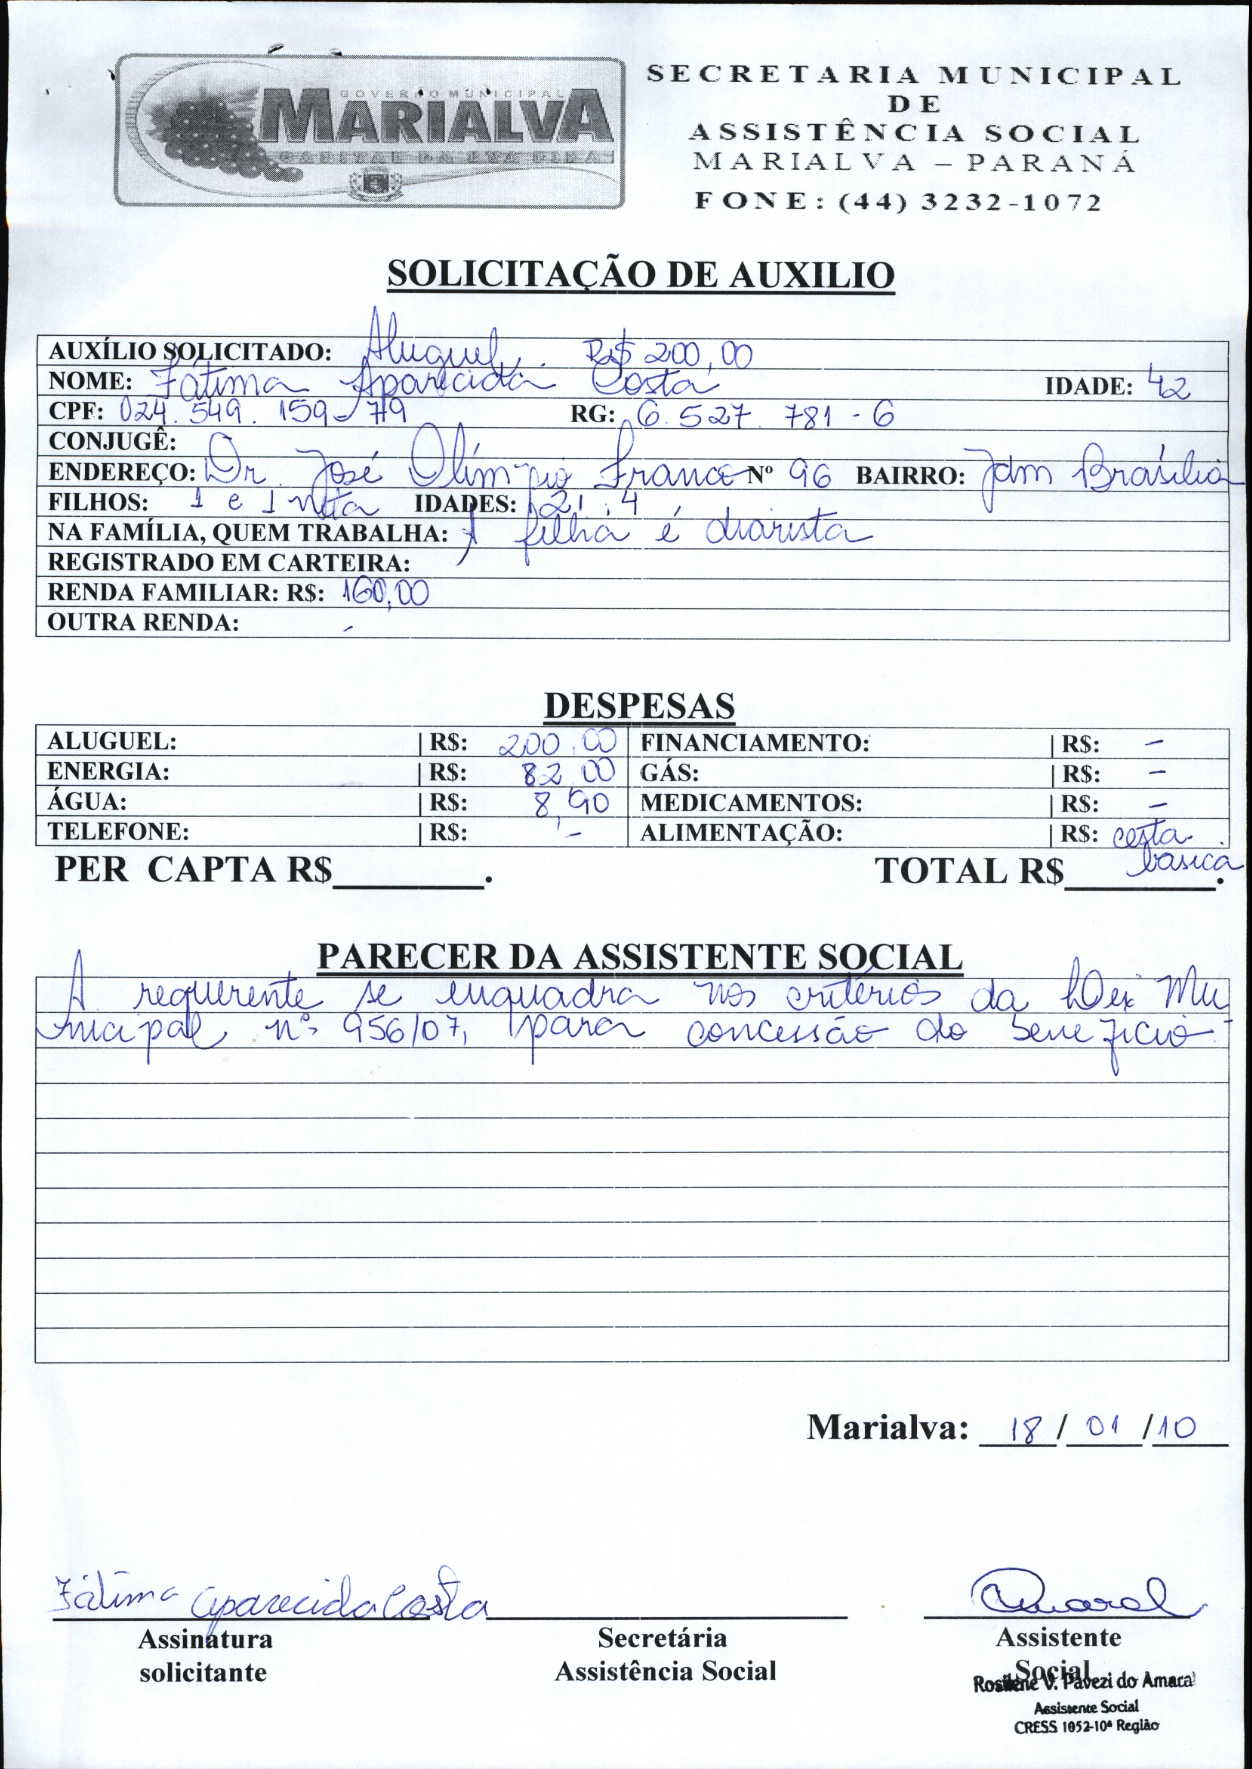 GOVERNO MUNICIPAL
MARIALVA
CAPITAL DA UVA FINA
SECRETARIA MUNICIPAL
DE
ASSISTÊNCIA SOCIAL
MARIALVA – PARANÁ
FONE: (44) 3232-1072
SOLICITAÇÃO DE AUXILIO
AUXÍLIO SOLICITADO: Aluguel. R$ 200,00
NOME: Fátima Aparecida Costa IDADE: 42
CPF: 024.549.159-79 RG: 6.527.781-6
CONJUGÊ:
ENDEREÇO: Dr. José Olímpio Franco Nº 96 BAIRRO: Jdm Brasília
FILHOS: 1 e 1 neta IDADES: 21, 4
NA FAMÍLIA, QUEM TRABALHA: A filha é diarista
REGISTRADO EM CARTEIRA:
RENDA FAMILIAR: R$: 160,00
OUTRA RENDA: -
DESPESAS
ALUGUEL: | R$: 200,00 FINANCIAMENTO: | R$: -
ENERGIA: | R$: 82,00 GÁS: | R$: -
ÁGUA: | R$: 8,90 MEDICAMENTOS: | R$: -
TELEFONE: | R$: - ALIMENTAÇÃO: | R$: cesta
básica
PER CAPTA R$________. TOTAL R$________.
PARECER DA ASSISTENTE SOCIAL
A requerente se enquadra nos critérios da Lei Mu
nicipal nº 956/07, para concessão do benefício
Marialva: 18/01/10
Fátima Aparecida Costa
Assinatura
solicitante
Secretária
Assistência Social
Amaral
Assistente
Social
Rosilene V. Pavezi do Amaral
Assistente Social
CRESS 1052-10ª Região